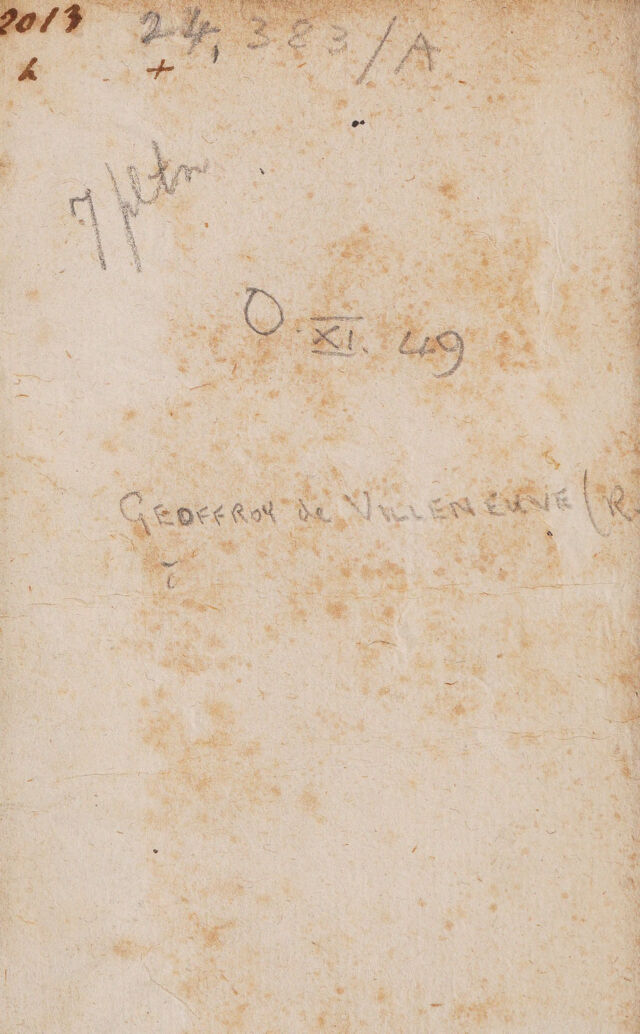 2013 24,383/A
h +
7 pltn
O. XI. 49
GEOFFROY de VILLENEUVE (R.